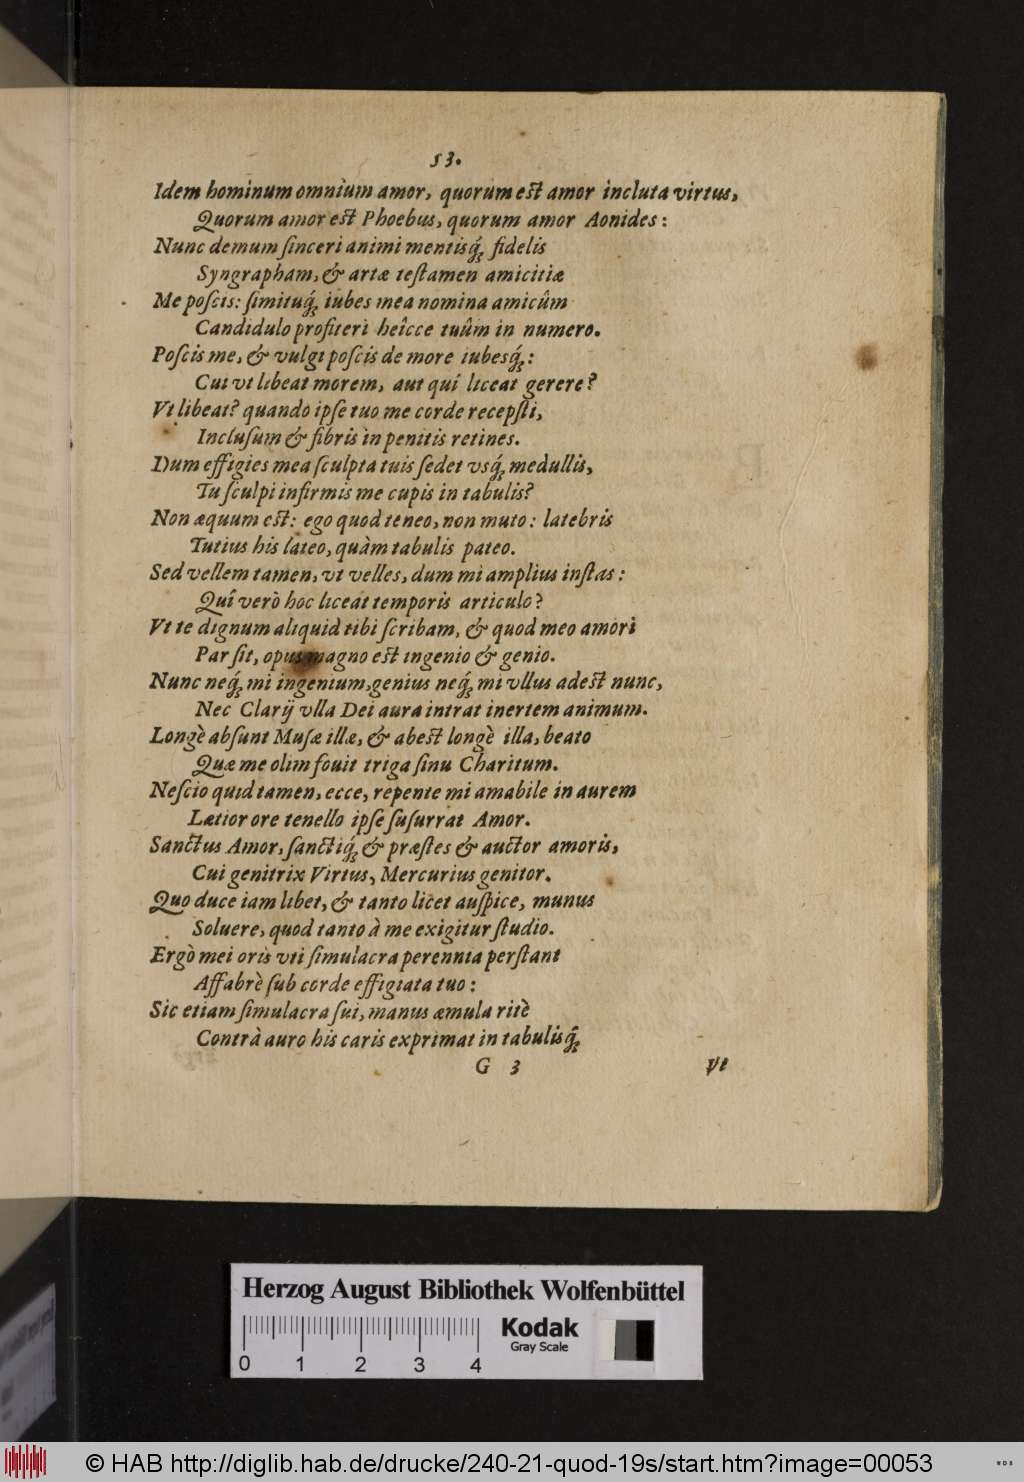 53.
Idem hominum omnium amor, quorum eſt amor incluta virtus,
Quorum amor eſt Phoebus, quorum amor Aonides:
Nunc demum ſinceri animi mentisq́ꝫ fidelis
Syngrapham, & artæ teſtamen amicitiæ
Me poſcis: ſimituq́ꝫ iubes mea nomina amicûm
Candidulo profiteri heîcce tuûm in numero.
Poſcis me, & vulgi poſcis de more iubesq́ꝫ:
Cui vt libeat morem, aut quî liceat gerere?
Vt libeat? quando ipſe tuo me corde recepſti,
Incluſum & fibris in penitis retines.
Dum effigies mea ſculpta tuis ſedet vsq́ꝫ medullis,
Tu ſculpi infirmis me cupis in tabulis?
Non æquum eſt: ego quod teneo, non muto: latebris
Tutius his lateo, quàm tabulis pateo.
Sed vellem tamen, vt velles, dum mi amplius inſtas:
Quî verò hoc liceat temporis articulo?
Vt te dignum aliquid tibi ſcribam, & quod meo amori
Par ſit, opus magno eſt ingenio & genio.
Nunc neq́ꝫ mi ingenium, genius neq́ꝫ mi vllus adeſt nunc,
Nec Clarij vlla Dei aura intrat inertem animum.
Longè abſunt Muſæ illæ, & abeſt longè illa, beato
Quæ me olim fouit triga ſinu Charitum.
Neſcio quid tamen, ecce, repente mi amabile in aurem
Lætior ore tenello ipſe ſuſurrat Amor.
Sanctus Amor, ſanctiq́ꝫ & præſtes & auctor amoris,
Cui genitrix Virtus, Mercurius genitor.
Quo duce iam libet, & tanto licet auſpice, munus
Soluere, quod tanto à me exigitur ſtudio.
Ergò mei oris vti ſimulacra perennia perſtant
Affabrè ſub corde effigiata tuo:
Sic etiam ſimulacra ſui, manus æmula ritè
Contrà auro his caris exprimat in tabulisq́ꝫ
G 3 Vt
Herzog August Bibliothek Wolfenbüttel
Kodak
Gray Scale
0 1 2 3 4
© HAB http://diglib.hab.de/drucke/240-21-quod-19s/start.htm?image=00053